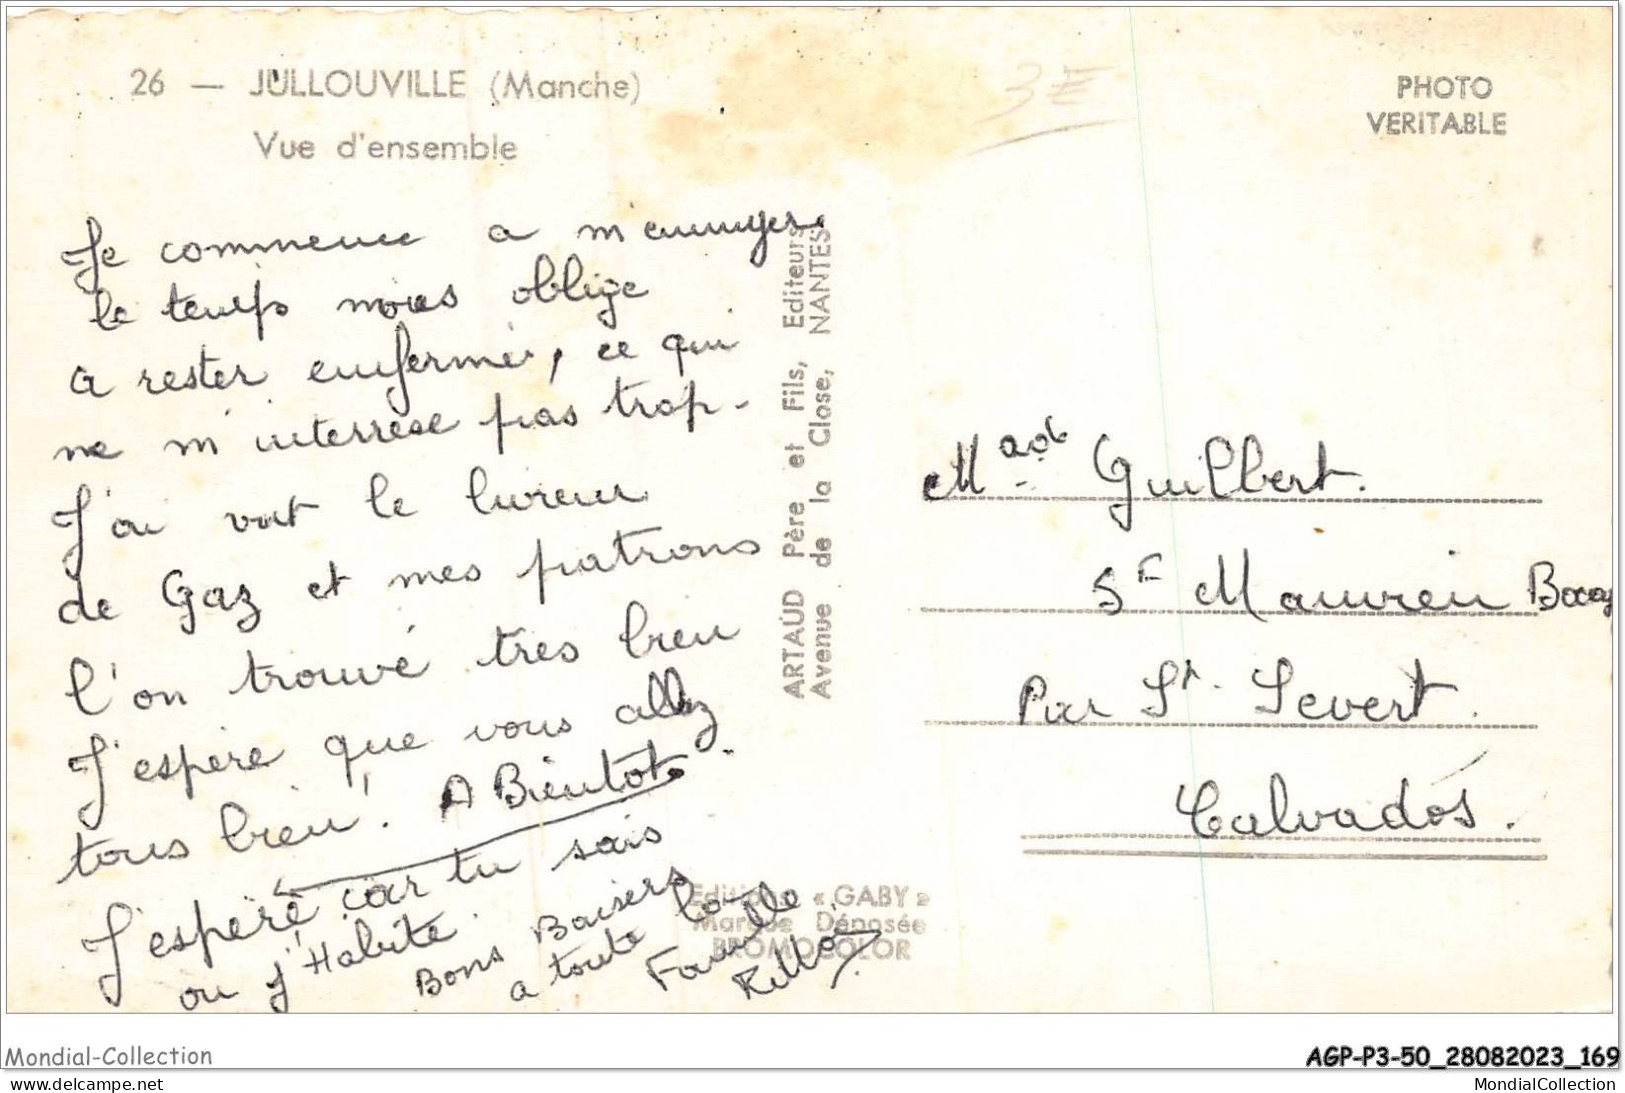 26 — JULLOUVILLE (Manche)
Vue d'ensemble
3E
PHOTO
VERITABLE
Je commence a m'ennuyer.
le temps nous oblige
a rester enfermé, ce qui
ne m'interrese pas trop.
J'ai vut le livreur
de Gaz et mes patrons
l'on trouvé tres bien
J'espère que vous allez
tous bien! A Bientot.
J'espere car tu sais
ou j'Habite.
Bons Baisers
a toute la
Famille
ARTAUD Père et Fils, Editeurs
Avenue de la Close, NANTES
Editions « GABY »
Marque Déposée
BROMOCOLOR
Mad Guilbert.
St Manvieu Bocag
Par St. Severt.
Calvados.
Mondial-Collection
AGP-P3-50_28082023_169
delcampe.net
MondialCollection